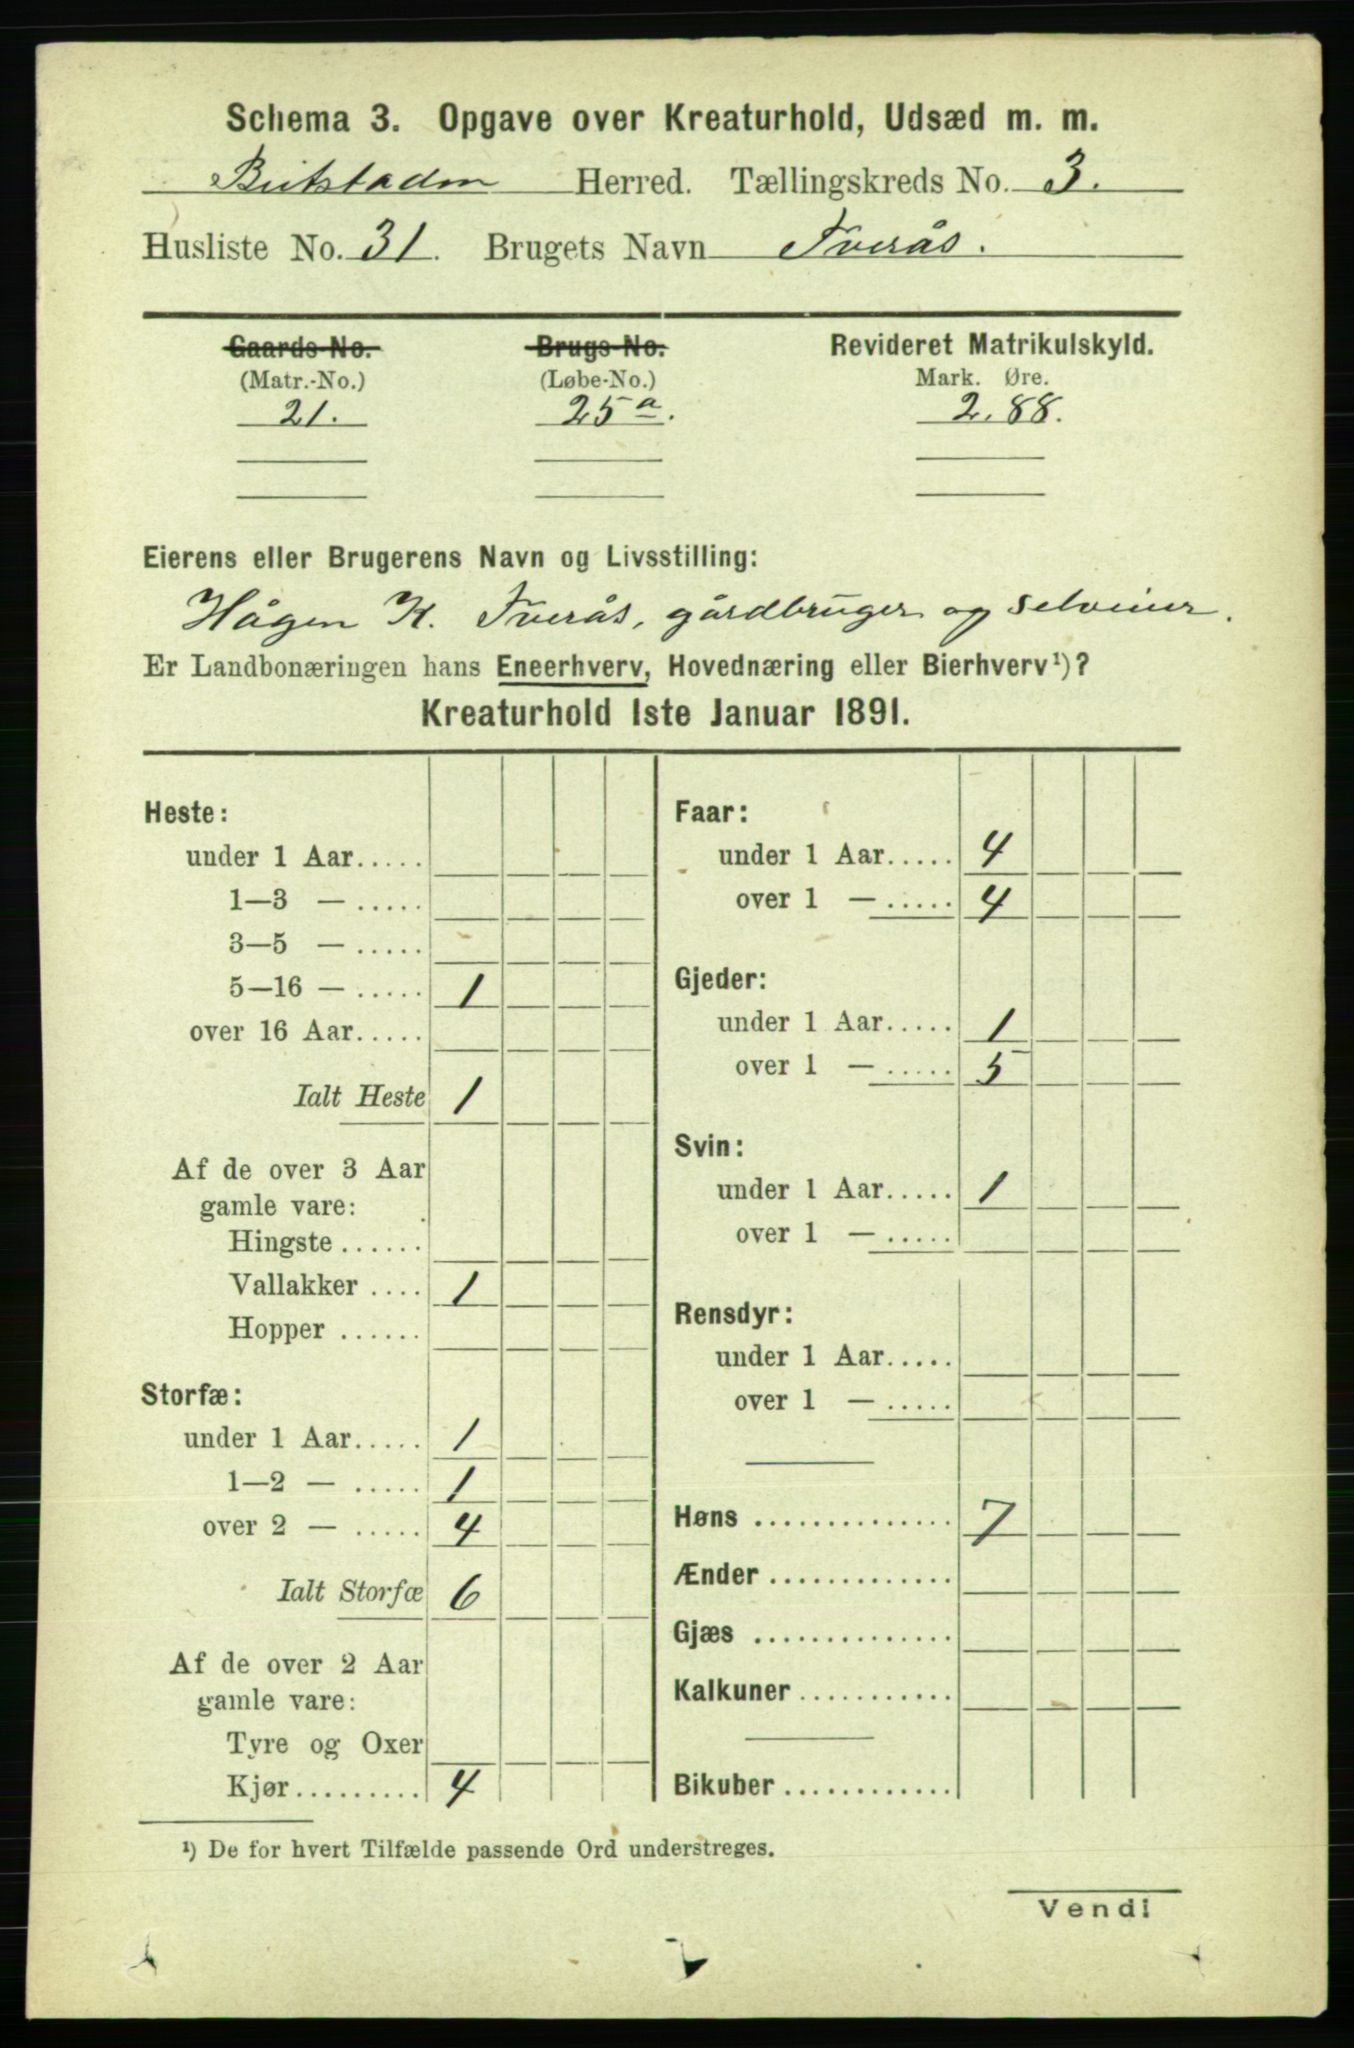 Schema 3. Opgave over Kreaturhold, Udsæd m. m.
Beitstaden Herred. Tællingskreds No. 3.
Husliste No. 31. Brugets Navn Tverås.
Gaards-No. Brugs-No. Revideret Matrikulskyld.
(Matr.-No.) (Løbe-No.) Mark. Øre.
21. 25a. 2.88.
Eierens eller Brugerens Navn og Livsstilling:
Hågen K. Tverås, gårdbruger og selveier.
Er Landbonæringen hans Eneerhverv, Hovednæring eller Bierhverv¹)?
Kreaturhold 1ste Januar 1891.
Heste:
under 1 Aar.....
1—3 — .....
3—5 — .....
5—16 — ..... 1
over 16 Aar.....
Ialt Heste 1
Af de over 3 Aar
gamle vare:
Hingste ......
Vallakker .... 1
Hopper ......
Storfæ:
under 1 Aar..... 1
1—2 — ..... 1
over 2 — ..... 4
Ialt Storfæ 6
Af de over 2 Aar
gamle vare:
Tyre og Oxer
Kjør......... 4
Faar:
under 1 Aar..... 4
over 1 — ..... 4
Gjeder:
under 1 Aar..... 1
over 1 — ..... 5
Svin:
under 1 Aar..... 1
over 1 — .....
Rensdyr:
under 1 Aar.....
over 1 — .....
Høns .............. 7
Ænder .............
Gjæs ..............
Kalkuner ...........
Bikuber ............
¹) De for hvert Tilfælde passende Ord understreges.
Vend!